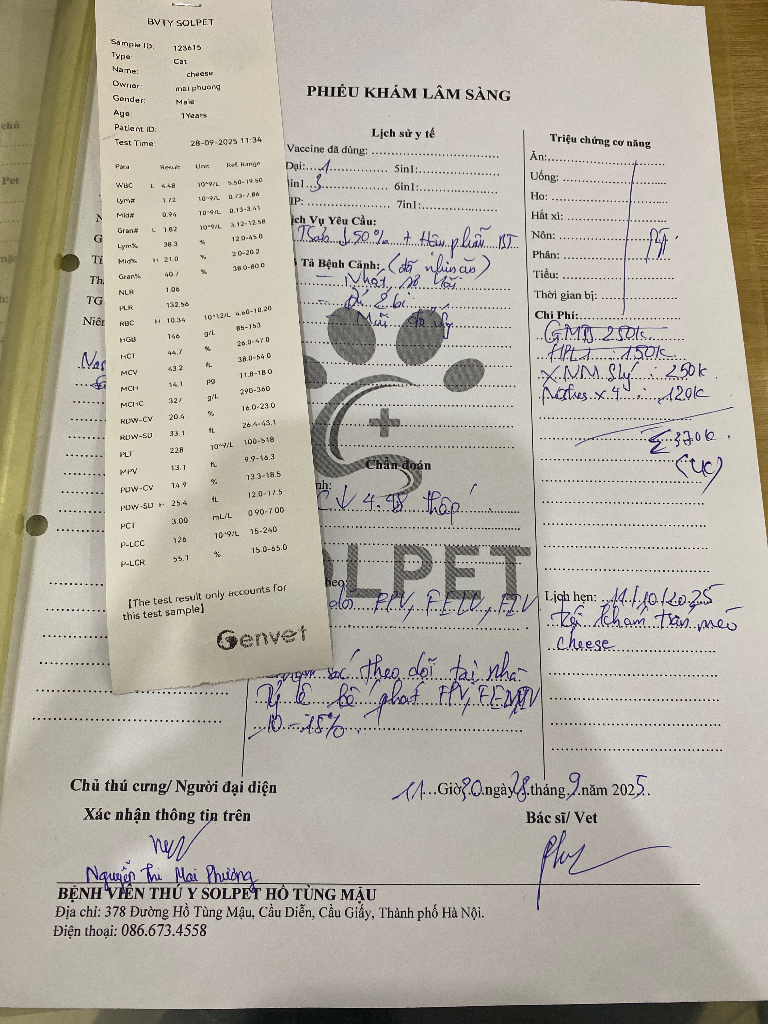 BVTY SOLPET
Sample ID: 123615
Type: Cat
Name: cheese
Owner: mai phuong
Gender: Male
Age: 1Years
Patient ID:
Test Time: 28-09-2025 11:34
Para Result Unit Ref. Range
WBC L 4.48 10^9/L 5.50-19.50
Lym# 1.72 10^9/L 0.73-7.86
Mid# 0.94 10^9/L 0.13-3.41
Gran# L 1.82 10^9/L 3.12-12.58
Lym% 38.3 % 12.0-45.0
Mid% H 21.0 % 2.0-20.2
Gran% 40.7 % 38.0-80.0
NLR 1.06
PLR 132.56
RBC H 10.34 10^12/L 4.60-10.20
HGB 146 g/L 85-153
HCT 44.7 % 26.0-47.0
MCV 43.2 fL 38.0-54.0
MCH 14.1 pg 11.8-18.0
MCHC 327 g/L 290-360
RDW-CV 20.4 % 16.0-23.0
RDW-SD 33.1 fL 26.4-43.1
PLT 228 10^9/L 100-518
MPV 13.1 fL 9.9-16.3
PDW-CV 14.9 % 13.3-18.5
PDW-SD H 25.4 fL 12.0-17.5
PCT 3.00 mL/L 0.90-7.00
P-LCC 126 10^9/L 15-240
P-LCR 55.1 % 15.0-65.0
[The test result only accounts for
this test sample]
Genvet
PHIẾU KHÁM LÂM SÀNG
Lịch sử y tế
Vaccine đã dùng:
Dại: 1 5in1:
in1 3 6in1:
IP: 7in1:
ịch Vụ Yêu Cầu:
↓50% +
Tả Bệnh Cảnh:
Chẩn đoán
↓ 4.48 thấp
SOLPET
FPV, FELV, FIV
theo dõi tại nhà
Tỷ lệ
10 - 15%
Triệu chứng cơ năng
Ăn:
Uống:
Ho:
Hắt xì:
Nôn:
Phân:
Tiểu:
Thời gian bị:
BT
Chi Phí:
GMB 250k
150k
XNM Lý : 250k
x 4 : 120k
Σ 370k
(ck)
Lịch hẹn: 11/10/2025
tái khám trên mèo
cheese
Chủ thú cưng/ Người đại diện
Xác nhận thông tin trên
Nguyễn Thị Mai Phương
11 Giờ 30 ngày 28 tháng 9 năm 2025.
Bác sĩ/ Vet
BỆNH VIỆN THÚ Y SOLPET HỒ TÙNG MẬU
Địa chỉ: 378 Đường Hồ Tùng Mậu, Cầu Diễn, Cầu Giấy, Thành phố Hà Nội.
Điện thoại: 086.673.4558